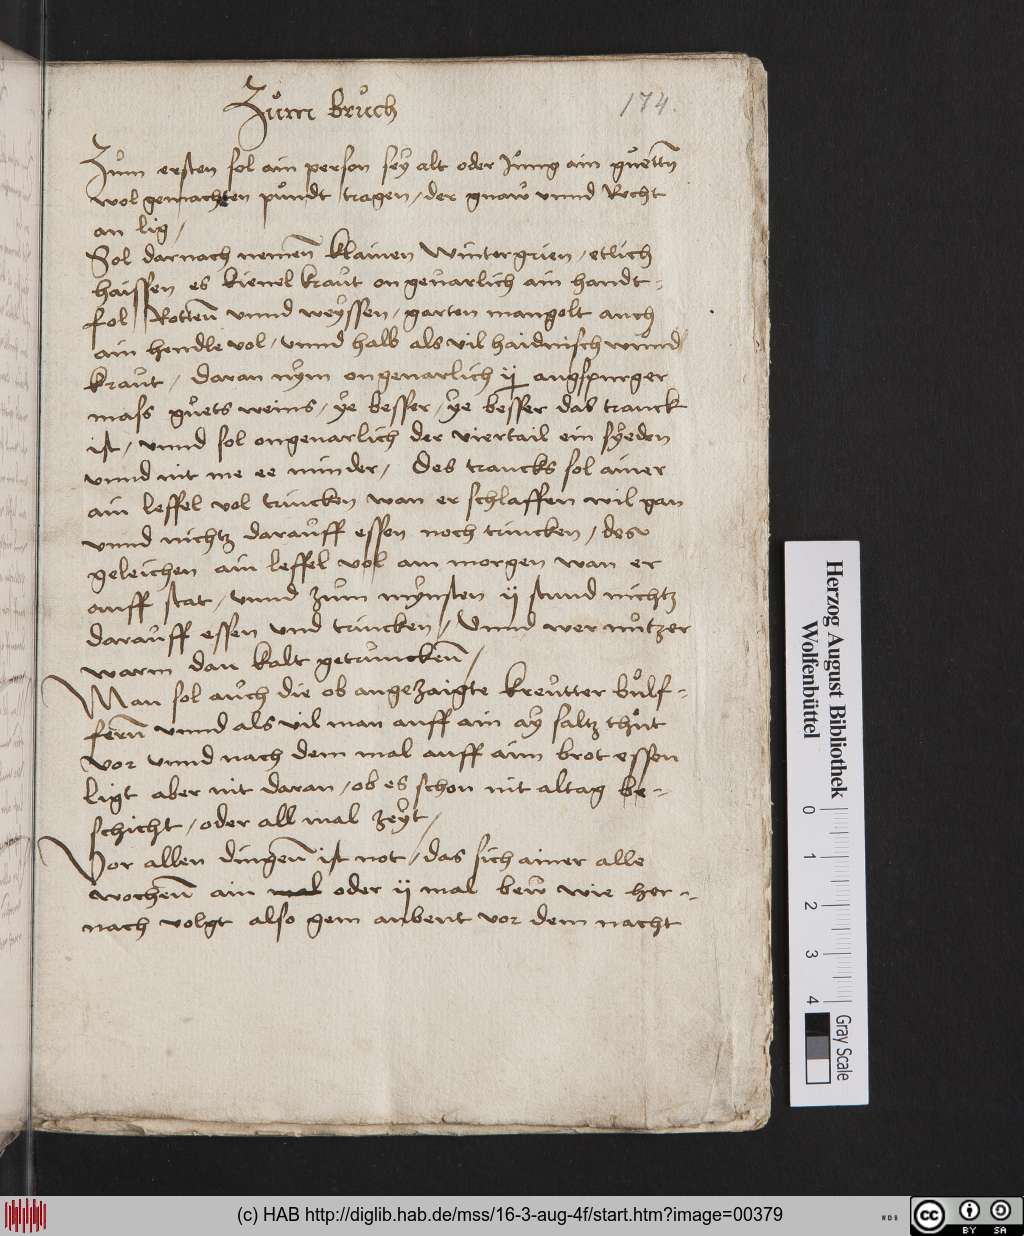 Zům bruch
174.
Zům ersten sol ain person seÿ alt oder Jůng ain gůettn̄
wol gemachten pundt tragen / der gnaw vnnd Recht
an lig /
Sol darnach nemen̄ klainen Wintergrien / etlich
haissen es kienel kraut ongeuarlich ain handt-
fol Rotten̄ vnnd weÿssen / garten mangolt auch
ain hendle vol / vnnd halb als vil haidnisch wund
kraut / daran nÿm ongeuarlich ij augspurger
mass gůets weins / ÿe besser / ÿe besser das tranck
ist / vnnd sol ongeuarlich der viertail ein sÿeden
vnnd nit me ee minder / Des trancks sol ainer
ain leffel vol trincken wan er schlaffen wil gan
vnnd nichtz darauff essen noch trincken / des
geleichen ain leffel vol am morgen wan er
auff stat / vnnd zům mÿnsten ij stund nichtz
darauff essen vnd trincken / Vnnd wer nůtzer
warm dan kalt getruncken̄ /
Man sol auch die ob angezaigte kreutter bůlf-
fern̄ vnnd als vil man auff ain aÿ saltz thůt
vor vnnd nach dem mal auff aim brot essen
ligt aber nit daran / ob es schon nit altag be-
schicht / oder all mal zeÿt /
Vor allen dingen̄ ist not / das sich ainer alle
wochen̄ ain mal oder ij mal bew wie her-
nach volgt also gem aubent vor dem nacht
Herzog August Bibliothek
Wolfenbüttel
0 1 2 3 4
Gray Scale
(c) HAB http://diglib.hab.de/mss/16-3-aug-4f/start.htm?image=00379
WDB
cc BY SA